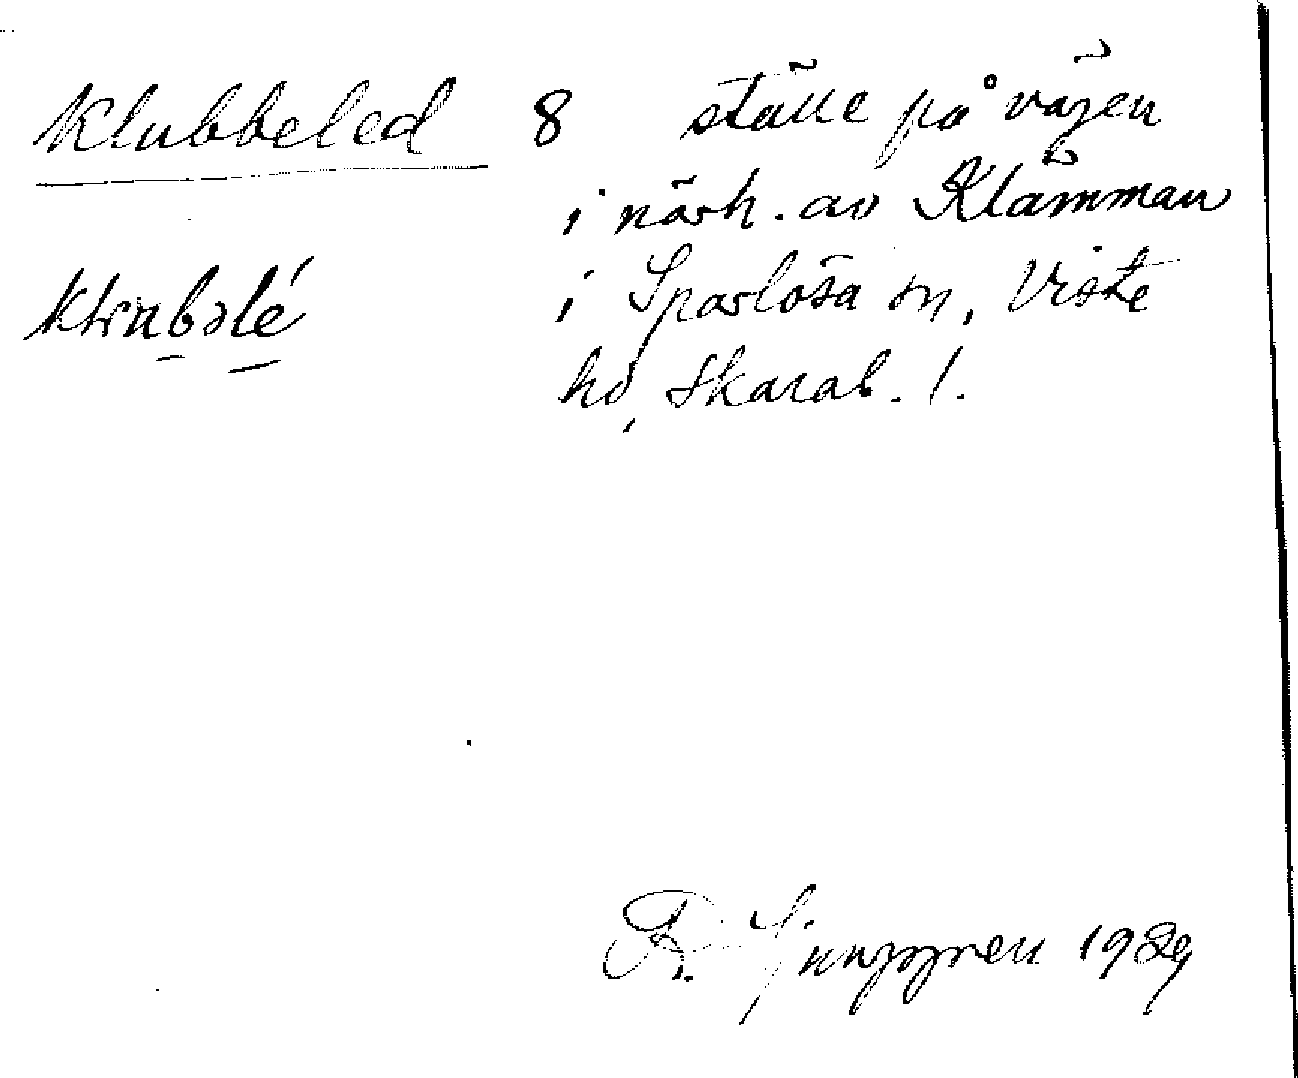 Klubbeled 8 ställe på vägen
i närh. av Klämman
i Sparlösa sn, Viste
hd, Skarab. l.
1929